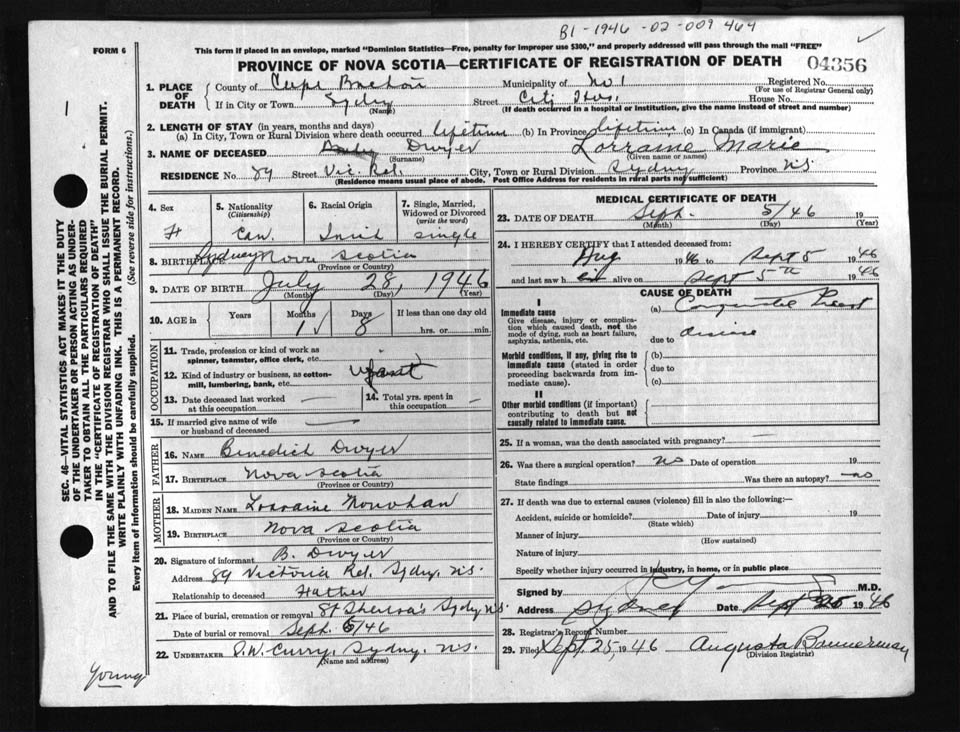 B1-1946-02-009464
FORM 6
This form if placed in an envelope, marked "Dominion Statistics—Free, penalty for improper use $300," and properly addressed will pass through the mail "FREE"
PROVINCE OF NOVA SCOTIA—CERTIFICATE OF REGISTRATION OF DEATH 04356
1. PLACE OF DEATH
County of Cape Breton Municipality of No 1 Registered No.
(For use of Registrar General only)
If in City or Town Sydney Street City Hos. House No.
(Name) (If death occurred in a hospital or institution, give the name instead of street and number)
2. LENGTH OF STAY (in years, months and days)
(a) In City, Town or Rural Division where death occurred lifetime (b) In Province lifetime (c) In Canada (if immigrant)
3. NAME OF DECEASED Dwyer Lorraine Marie
(Surname) (Given name or names)
RESIDENCE No. 89 Street Vic. Rd. City, Town or Rural Division Sydney Province N.S.
(Residence means usual place of abode. Post Office Address for residents in rural parts not sufficient)
4. Sex
F
5. Nationality
(Citizenship)
Can.
6. Racial Origin
Irish
7. Single, Married, Widowed or Divorced
(write the word)
single
8. BIRTHPLACE Sydney Nova Scotia
(Province or Country)
9. DATE OF BIRTH July 28, 1946
(Month) (Day) (Year)
10. AGE in
Years Months Days If less than one day old
1 8 hrs. or min.
OCCUPATION
11. Trade, profession or kind of work as spinner, teamster, office clerk, etc.
12. Kind of industry or business, as cotton-mill, lumbering, bank, etc. infant
13. Date deceased last worked at this occupation —
14. Total yrs. spent in this occupation —
15. If married give name of wife or husband of deceased —
FATHER
16. NAME Benedict Dwyer
17. BIRTHPLACE Nova Scotia
(Province or Country)
MOTHER
18. MAIDEN NAME Lorraine Monohan
19. BIRTHPLACE Nova Scotia
(Province or Country)
20. Signature of informant B. Dwyer
Address 89 Victoria Rd. Sydny. N.S.
Relationship to deceased Father
21. Place of burial, cremation or removal St Theresa's Sydny N.S.
Date of burial or removal Sept. 5/46
22. UNDERTAKER D.W. Curry, Sydny. N.S.
(Name and address)
MEDICAL CERTIFICATE OF DEATH
23. DATE OF DEATH Sept. 5/46 19
(Month) (Day) (Year)
24. I HEREBY CERTIFY that I attended deceased from:
Aug 1946 to Sept 5 1946
and last saw h alive on Sept 5th 1946
CAUSE OF DEATH
I
Immediate cause
Give disease, injury or complication which caused death, not the mode of dying, such as heart failure, asphyxia, asthenia, etc.
(a) Congenital Heart
due to disease
Morbid conditions, if any, giving rise to immediate cause (stated in order proceeding backwards from immediate cause).
(b)
due to
(c)
II
Other morbid conditions (if important) contributing to death but not causally related to immediate cause.
25. If a woman, was the death associated with pregnancy? —
26. Was there a surgical operation? no Date of operation 19
State findings Was there an autopsy? no
27. If death was due to external causes (violence) fill in also the following:—
Accident, suicide or homicide? Date of injury 19
(State which)
Manner of injury
(How sustained)
Nature of injury
Specify whether injury occurred in industry, in home, or in public place
Signed by M.D.
Address Sydney Date Sept 25 1946
28. Registrar's Record Number
29. Filed Sept. 25, 1946 Augusta Bannerman
(Division Registrar)
SEC. 46—VITAL STATISTICS ACT MAKES IT THE DUTY OF THE UNDERTAKER OR PERSON ACTING AS UNDERTAKER TO OBTAIN ALL THE PARTICULARS REQUIRED IN THE "CERTIFICATE OF REGISTRATION OF DEATH" AND TO FILE THE SAME WITH THE DIVISION REGISTRAR WHO SHALL ISSUE THE BURIAL PERMIT.
WRITE PLAINLY WITH UNFADING INK. THIS IS A PERMANENT RECORD.
Every item of information should be carefully supplied. (See reverse side for instructions.)
Young